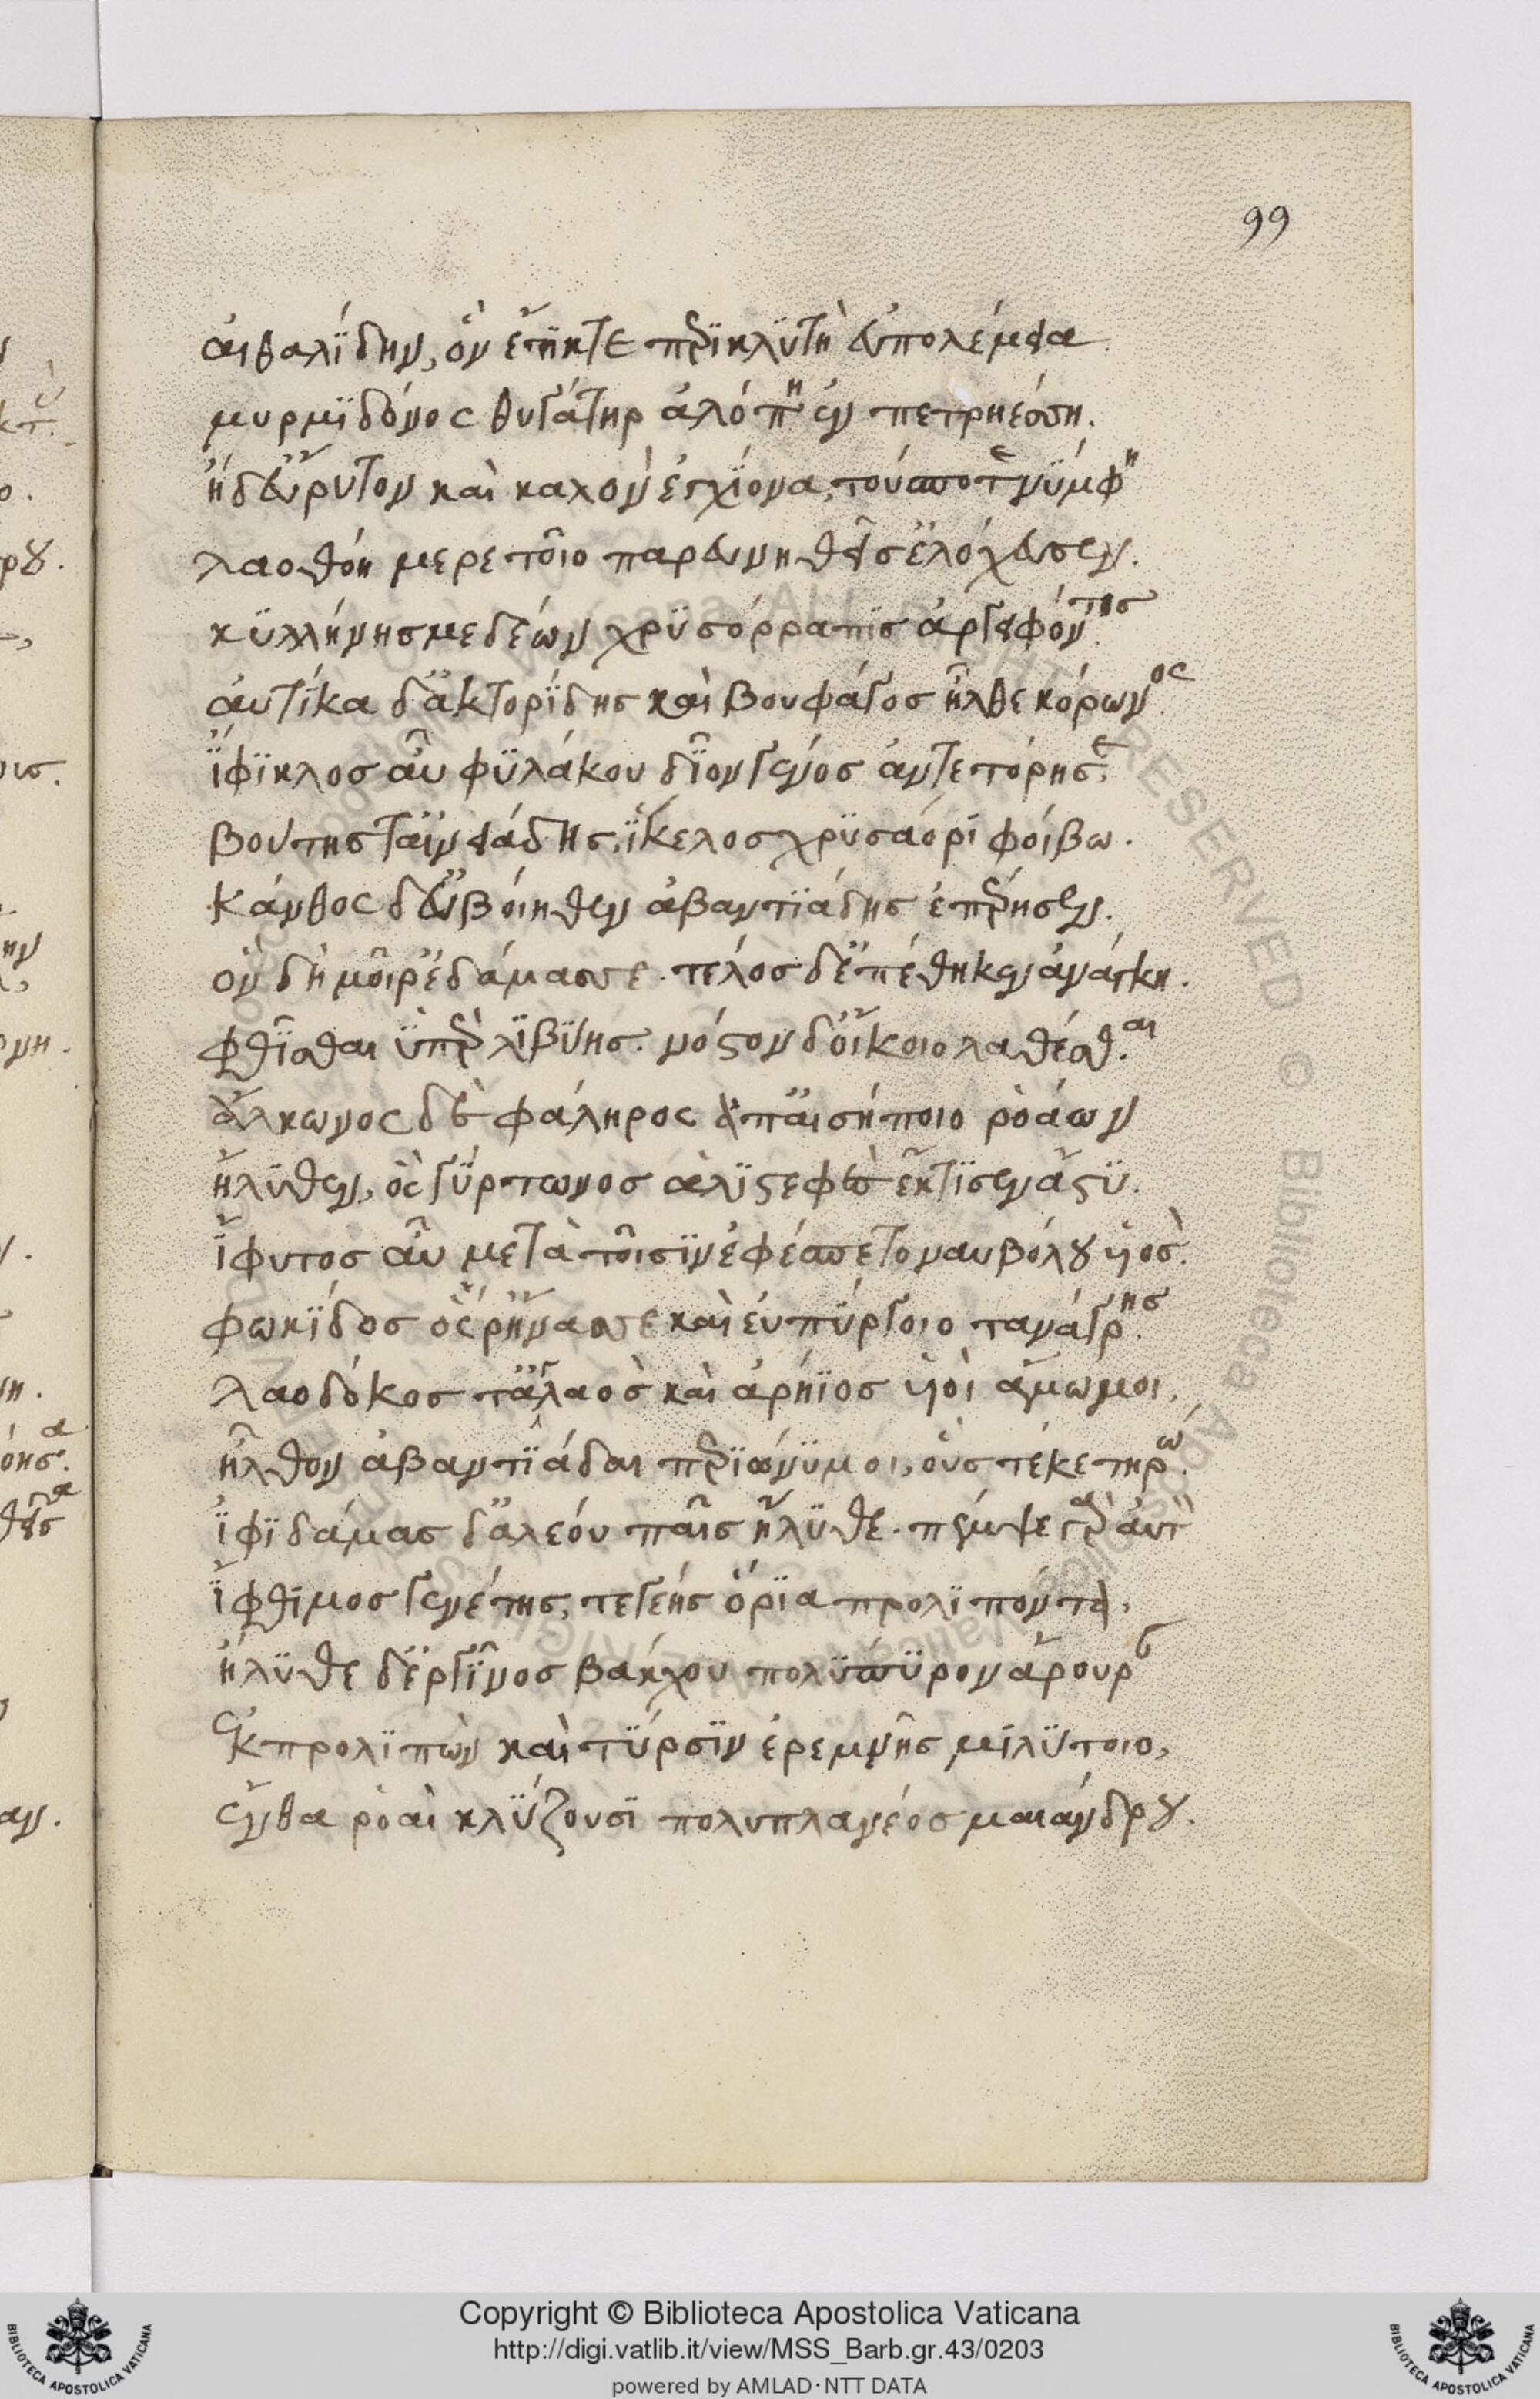 99
αἰθαλίδην, ὃν ἔτικτε περικλυτὴ εὐπολέμεια
μυρμιδόνος θυγάτηρ ἀλόπη ἐν πετρηέσση.
ἠδ' εὔρυτον καὶ καλὸν ἐχίονα, τούσποτε νύμφη
λαοθόη μερετοῖο παρευνηθεῖσ' ἐλόχευσεν.
κυλλήνης μεδέων χρυσόρραπις ἀργειφόντης.
αὐτίκα δ' ἀκτορίδης καὶ βουφάγος ἦλθε κόρωνος.
ἴφικλος αὖ φυλάκου δῖον γένος ἀντετόρησε.
βούτης τ' αἰνειάδης, ἴκελος χρυσαόρι φοίβω.
κάνθος δ' εὐβοίηθεν ἀβαντιάδης ἐπέρησεν.
ὃν δὴ μοῖρ' ἐδάμασσε. τέλος δ' ἐπέθηκεν ἀνάγκη.
φθῖσθαι ὑπὲρ λιβύης. νόστον δ' οἴκοιο λαθέσθαι.
ἄλκωνος δὲ φάληρος ἀπ' αἰσήποιο ῥοάων
ἤλυθεν, ὃς γύρτωνος ἁλιστεφὲς ἔκτισεν ἄστυ.
ἴφυτος αὖ μετὰ τοῖσιν ἐφέσπετο ναυβόλου υἱός.
φωκίδος ὃς ῥ' ἤνασσε καὶ εὐπύργοιο ταναγρης.
λαοδόκος τάλαος καὶ ἀρήϊος υἱοὶ ἀμώμοι,
ἦλθον ἀβαντιάδαι περιώνυμοι, οὓς τέκε πηρώ.
ἰφιδάμας δ' ἀλεοῦ παῖς ἤλυθε. πέμψε γὰρ αὐτ
ἴφθιμος γενέτης, τεγέης ὅρια προλιπόντα,
ἤλυθε δ' ἐργῖνος βάκχου πολύσπυρον ἄρουραν
ἐκπρολιπὼν καὶ τύρσιν ἐρεμνῆς μιλύτοιο,
ἔνθα ῥοαὶ κλύζουσι πολυπλανέος μαιάνδρου.
Copyright © Biblioteca Apostolica Vaticana
http://digi.vatlib.it/view/MSS_Barb.gr.43/0203
powered by AMLAD·NTT DATA
BIBLIOTECA APOSTOLICA VATICANA
BIBLIOTECA APOSTOLICA VATICANA